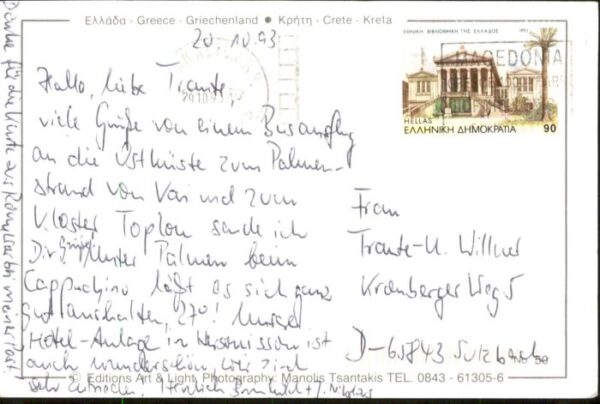 Ελλάδα - Greece - Griechenland ● Κρήτη - Crete - Kreta
20.10.93
Hallo, liebe Traute,
viele Grüße von einem Busausflug
an die Ostküste zum Palmen-
strand von Vai und zum
Kloster Toplou sende ich
Dir. Unter Palmen beim
Cappuchino läßt es sich ganz
gut aushalten, 27°! Unsere
Hotel-Anlage in Hersonissos ist
auch wunderschön, wir sind
sehr zufrieden. Herzlich
Danke für die Karte aus
20.10.93
ΕΘΝΙΚΗ ΒΙΒΛΙΟΘΗΚΗ ΤΗΣ ΕΛΛΑΔΟΣ
MACEDONIA
HELLAS
ΕΛΛΗΝΙΚΗ ΔΗΜΟΚΡΑΤΙΑ 90
Frau
Traute-U. Willner
Kronberger Weg 5
D-65843 Sulzbach
No 50
© Editions Art & Light, Photography: Manolis Tsantakis TEL. 0843 - 61305-6